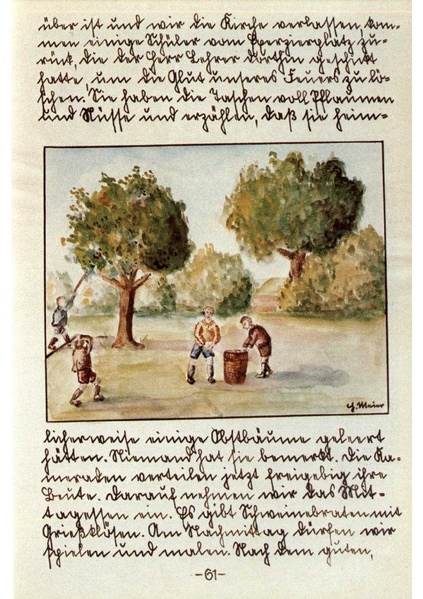 über ist und wir die Kirche verlassen, kom-
men einige Schüler vom Exerzierplatz zu-
rück, die der Herr Lehrer dorthin geschickt
hatte, um die Glut unseres Feuers zu lö-
schen. Sie haben die Taschen voll Pflaumen
und Nüsse und erzählen, daß sie heim-
G. Maier
licherweise einige Obstbäume geleert
hätten. Niemand hat sie bemerkt. Die Ka-
meraden verteilen jetzt freigebig ihre
Beute. Darauf nehmen wir das Mit-
tagessen ein. Es gibt Schweinebraten mit
Grießklösen. Am Nachmittag dürfen wir
spielen und malen. Nach dem guten,
-61-